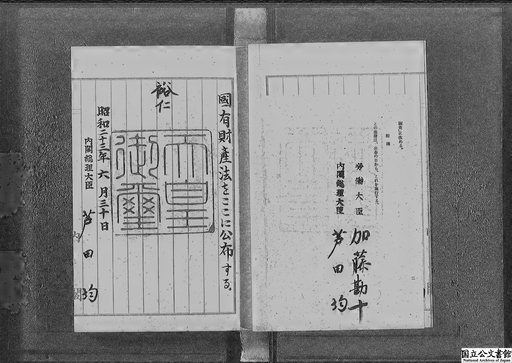 附則
勞働大臣
加藤勘十
内閣總理大臣
芦田均
國有財産法をここに公布する。
裕仁
天皇御璽
昭和二十三年六月三十日
内閣總理大臣
芦田均
国立公文書館
National Archives of Japan